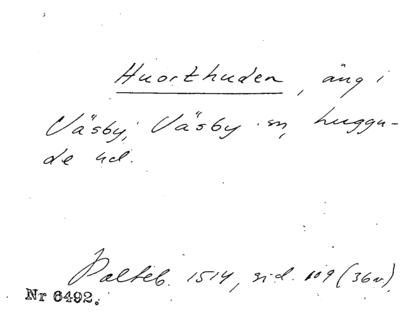 Huorthuden, äng i
Väsby, Väsby sn, Luggu-
de hd.
Palteb. 1514, sid. 109 (36v).
Nr 6492.